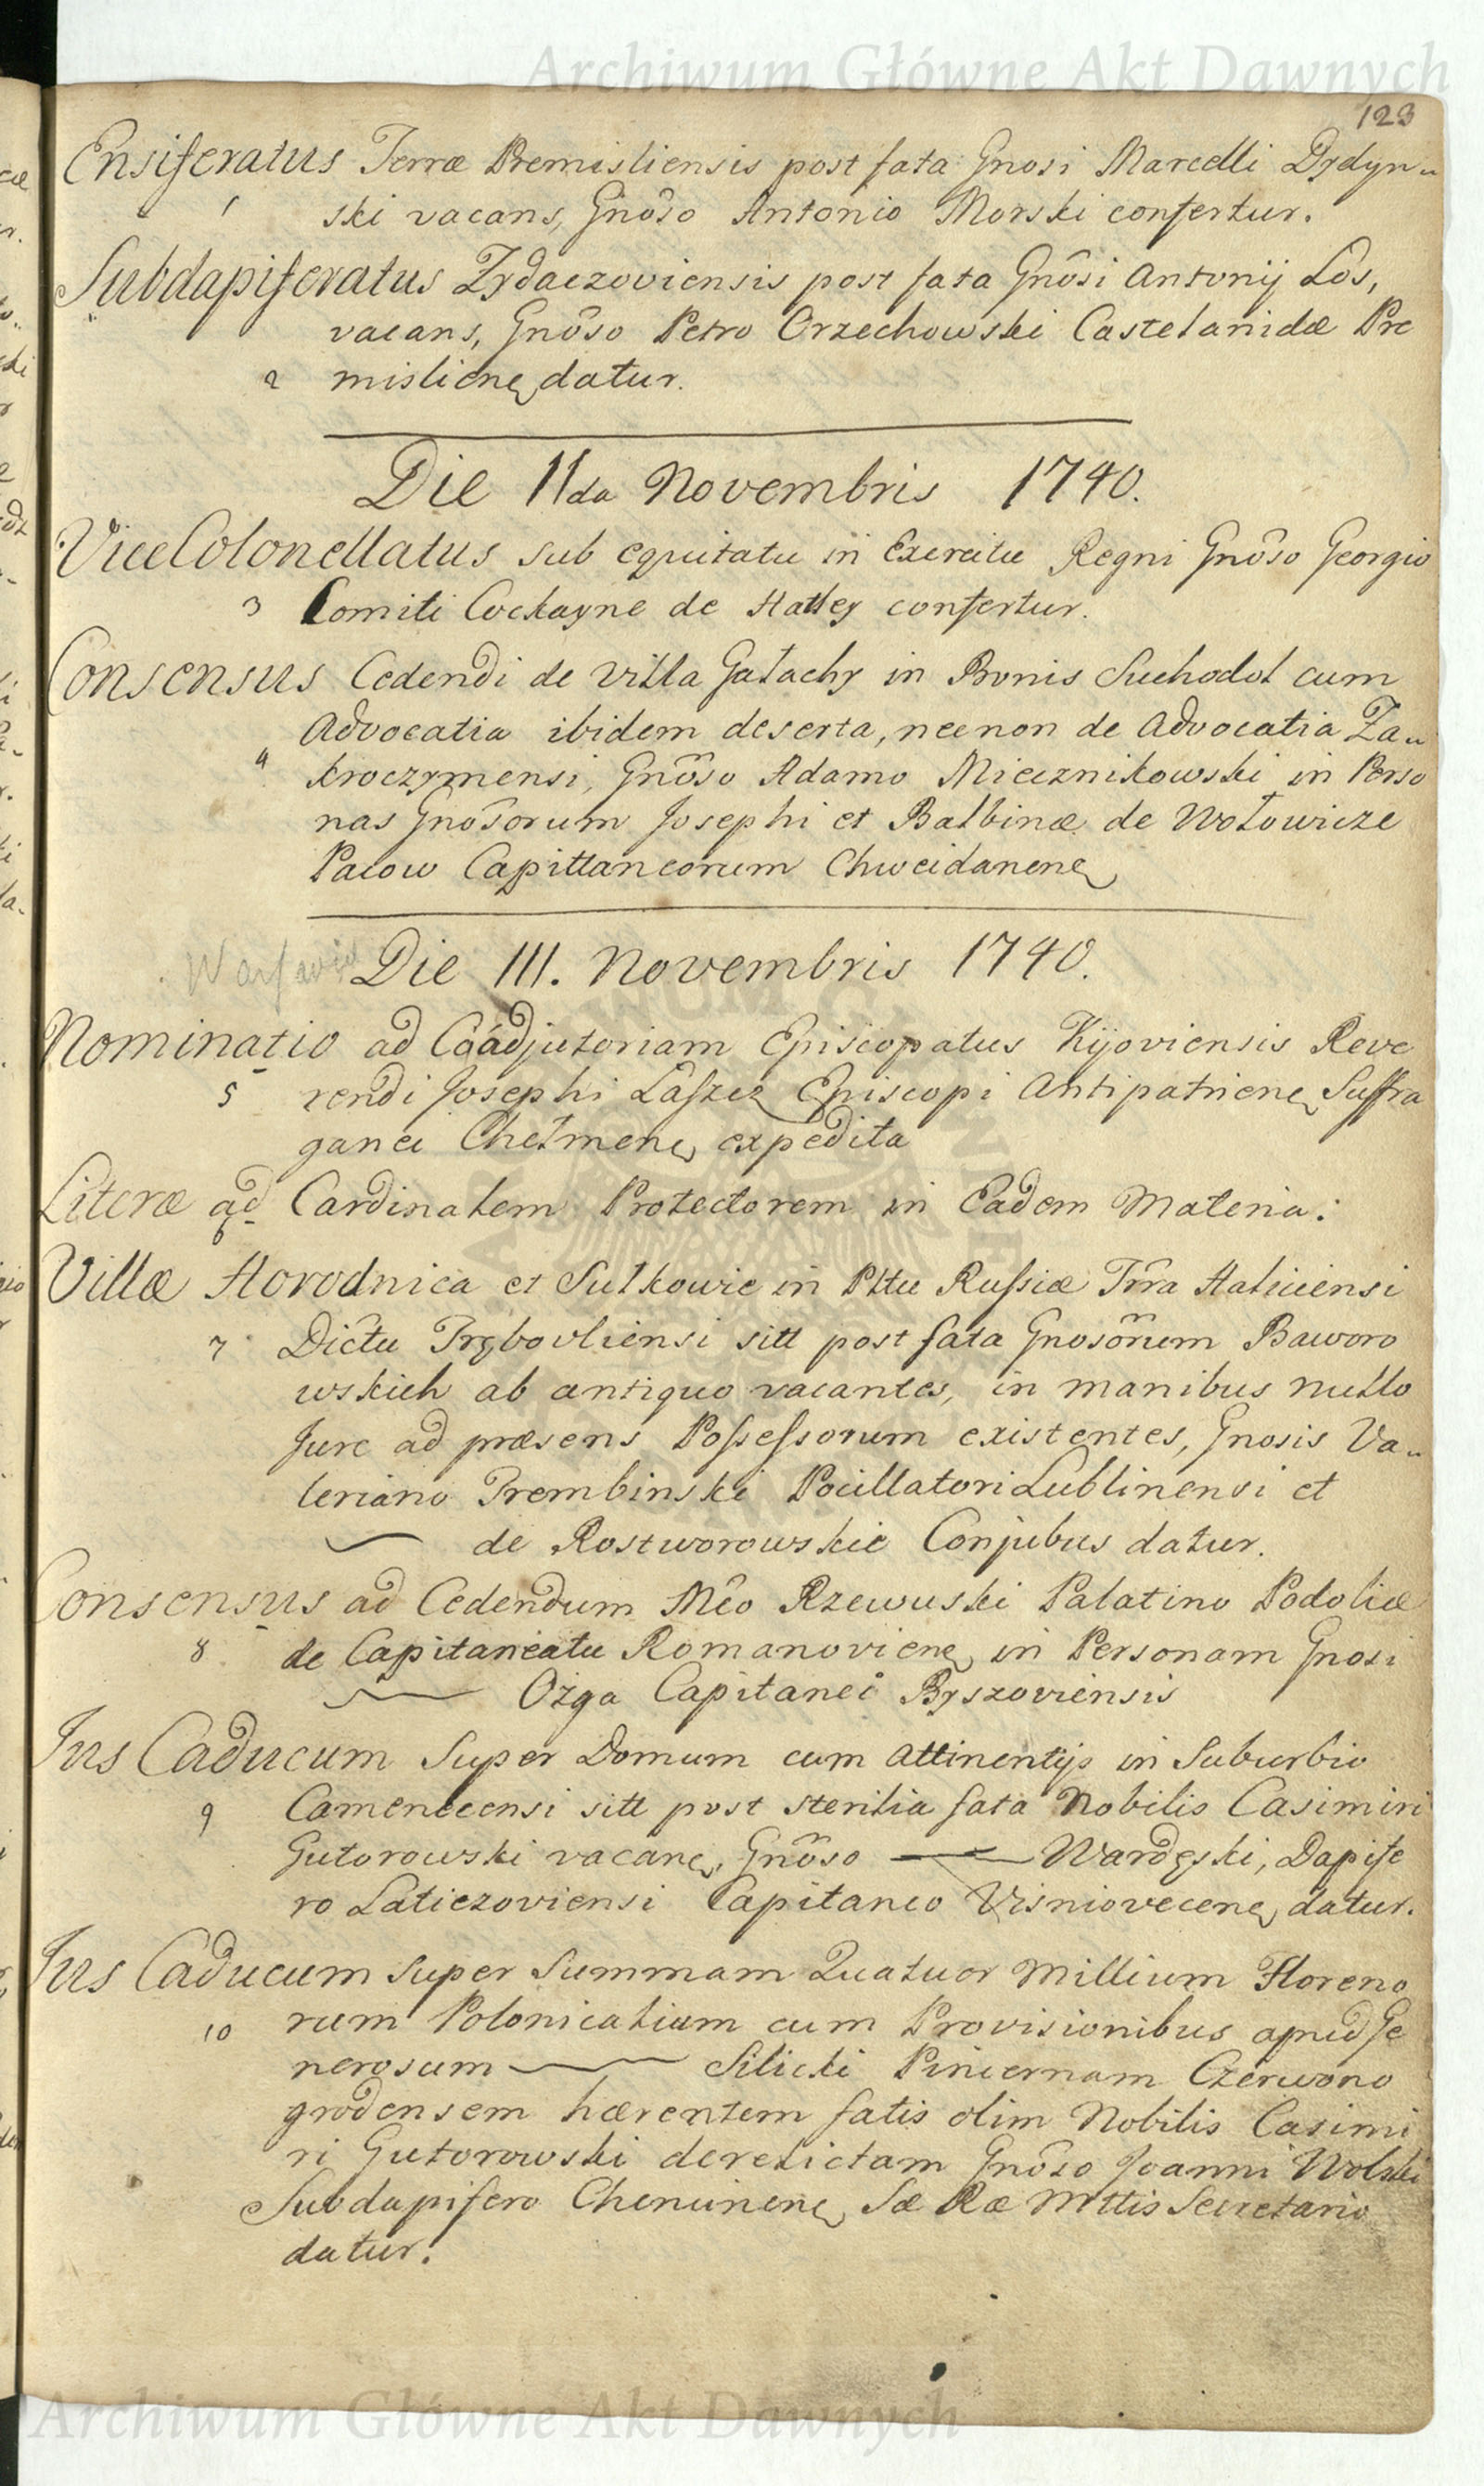 Archiwum Główne Akt Dawnych
123
Ensiferatus Terræ Premisliensis post fata Gnosi Marcelli Drdyn„
1 ski vacans, Gnôso Antonio Morski confertur.
Subdapiferatus Zydaczoviensis post fata Gnôsi Antonij Los,
vacans, Gnôso Petro Orzechowski Castelanidæ Pre
2 mislienę datur.
Die IIda Novembris 1740.
ViceColonellatus sub equitatu in Exercitu Regni Gnôso Georgio
3 Comiti Cockayne de Hatley confertur.
Consensus Cedendi de villa Gałachy in Bonis Suchodol cum
Advocatia ibidem deserta, necnon de Advocatia Za„
4 kroczymensi, Gnôso Adamo Miecznikowski in Perso
nas Gnôsorum Josephi et Balbinæ de Wołowicze
Pacow Capittaneorum Chweidanenę
Warsaviæ Die III. Novembris 1740.
Nominatio ad Coadjutoriam Episcopatus Kijoviensis Reve
5 rendi Josephi Łaszcz Episcopi Antipatrienę Suffra
ganei Chełmenę expedita
Literæ ad Cardinalem Protectorem in Eadem Materia:
6
Villæ Horodnica et Sułkowie in Pltu Russiæ Trra Haliciensi
7 Dictu Trębovliensi sitt post fata Gnosôrum Baworo
wskich ab antiquo vacantes, in manibus nullo
Jure ad præsens Possessorum existentes, Gnosis Va„
leriano Trembinski Pocillatori Lublinensi et
de Rostworowskie Conjubus datur.
Consensus ad Cedendum Mêo Rzewuski Palatino Podoliæ
8 de Capitaneatu Romanovienę in Personam Gnosi
Ożga Capitanei Byszoviensis
Jus Caducum Super Domum cum attinentijs in Suburbio
9 Camenecensi sitt post sterilia fata Nobilis Casimiri
Gutorowski vacanę, Gnôso Wardęski, Dapife
ro Laticzoviensi Capitaneo Visniovecenę datur.
Jus Caducum super Summam Quatuor Millium Floreno
10 rum Polonicalium cum Provisionibus apud Ge
nerosum Silicki Pincernam Czerwono
grodensem hærentem fatis olim Nobilis Casimi
ri Gutorowski derelictam Gnôso Joanni Wolski
Subdapifero Chenunenę Sæ Ræ Mttis Secretario
datur.
Archiwum Główne Akt Dawnych